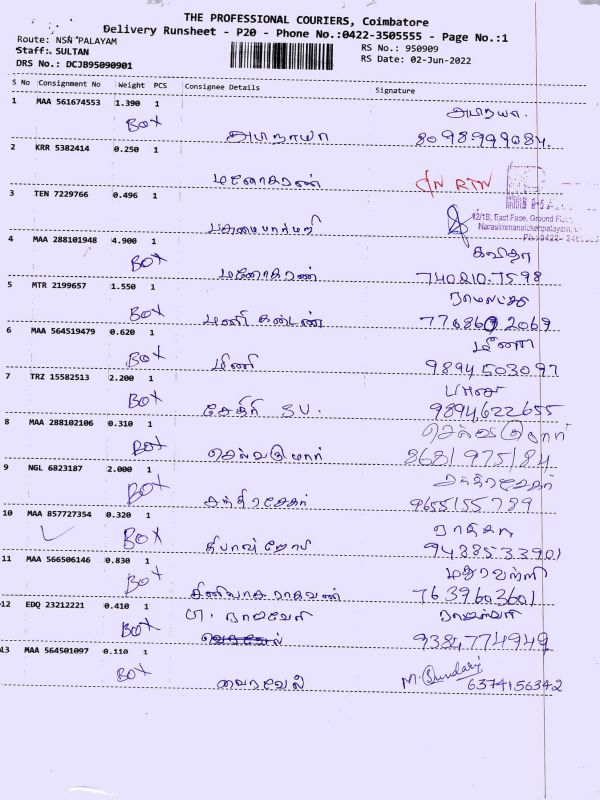 THE PROFESSIONAL COURIERS, Coimbatore
Delivery Runsheet - P20 - Phone No.:0422-3505555 - Page No.:1
Route: NSN PALAYAM RS No.: 950909
Staff: SULTAN RS Date: 02-Jun-2022
DRS No.: DCJB95090901
S No Consignment No Weight PCS Consignee Details Signature
1 MAA 561674553 1.390 1
BOX 8098999084
2 KRR 5382414 0.250 1
மனோகரண் RTN
3 TEN 7229766 0.496 1
12/1B, East Face, Ground Floor,
Narasimmanaickenpalayam,
4 MAA 288101948 4.900 1 கவிதா
BOX மனோகரண் 740810.7598
5 MTR 2199657 1.550 1
BOX மணி கண்டண் 7708602069
6 MAA 564519479 0.620 1 மீனா
BOX மினி 9894503097
7 TRZ 15582513 2.200 1
BOX சேகர் SV. 9894622655
8 MAA 288102106 0.310 1 செல்வகுமார்
BOX செல்வகுமார் 8681975184
9 NGL 6823187 2.000 1 சந்திரசேகர்
BOX சந்திரசேகர் 9655155789
10 MAA 857727354 0.320 1
BOX 9488533901
11 MAA 566506146 0.830 1
BOX 7639603601
12 EDQ 23212221 0.410 1
BOX 9384774949
13 MAA 564501097 0.110 1
BOX வைரவேல் M. Sundari 6374156342